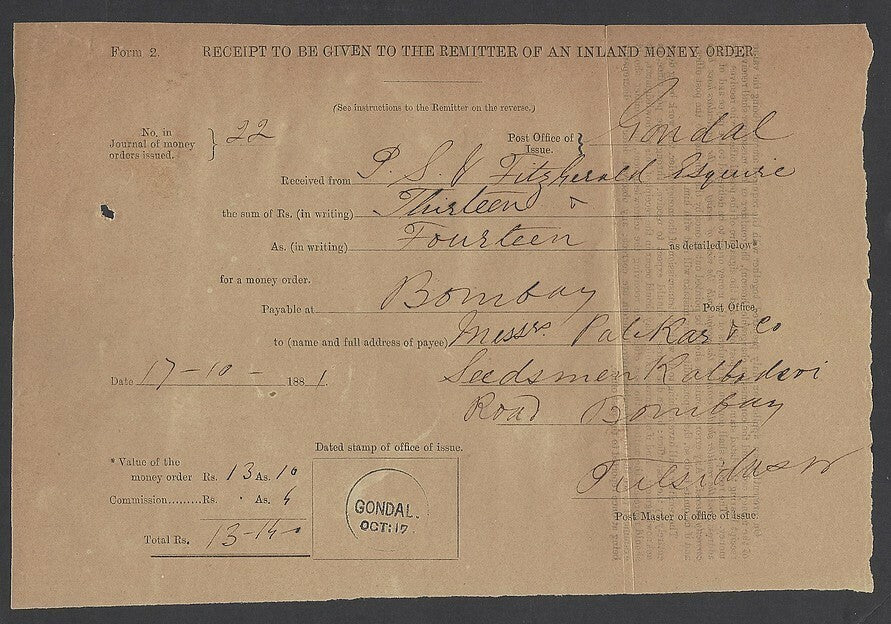 Form 2. RECEIPT TO BE GIVEN TO THE REMITTER OF AN INLAND MONEY ORDER.
(See instructions to the Remitter on the reverse.)
No. in Journal of money orders issued. } 22
Post Office of Issue. } Gondal
Received from P. S. V Fitzgerald Esquire
the sum of Rs. (in writing) Thirteen &
As. (in writing) Fourteen as detailed below*
for a money order.
Payable at Bombay Post Office,
to (name and full address of payee) Messrs. & Co
Seedsmen Kalbadevi
Road Bombay
Date 17-10- 1881.
Dated stamp of office of issue.
* Value of the money order Rs. 13 As. 10
Commission.........Rs. . As. 4
Total Rs. 13-14-
GONDAL.
OCT:17
Tulsidas
Post Master of office of issue.